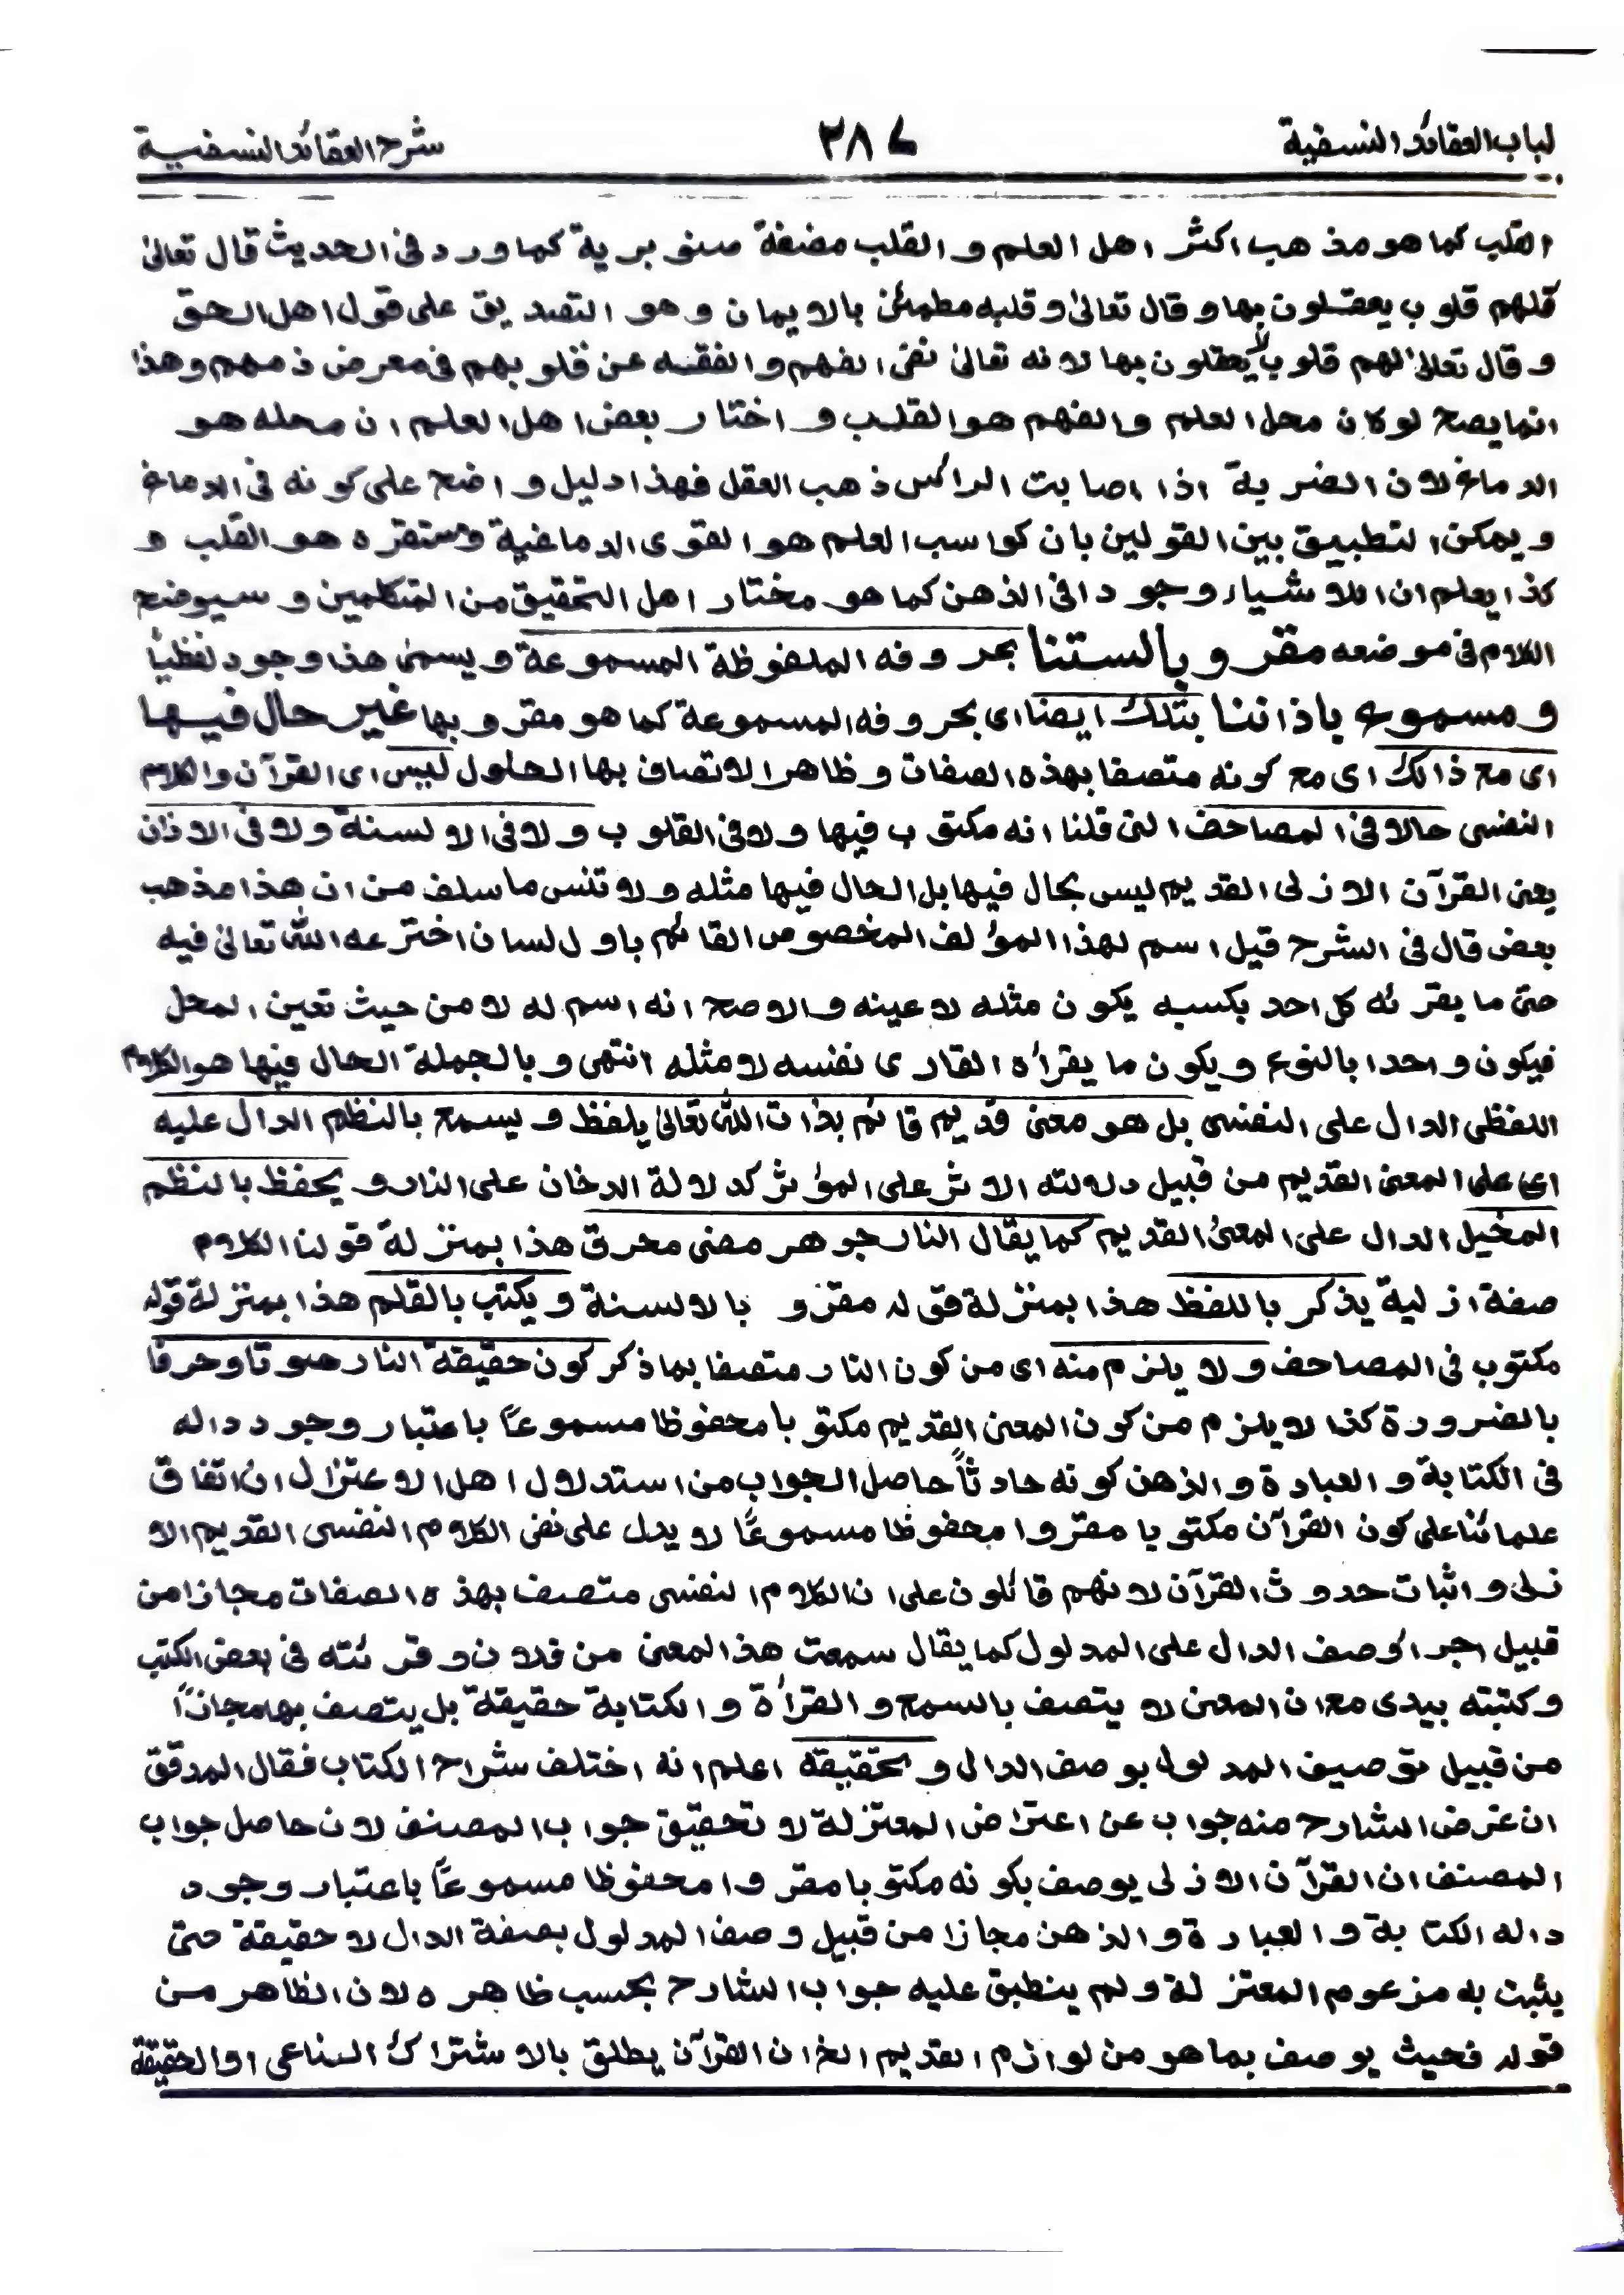 لباب العقائد النسفية ٢٨٧ شرح العقائد النسفية
القلب كما هو مذهب اكثر اهل العلم و القلب مضغة صنوبرية كما ورد فى الحديث قال تعالىٰ
فلهم قلوب يعقلون بها و قال تعالىٰ و قلبه مطمئن بالايمان و هو التصديق على قول اهل الحق
و قال تعالىٰ لهم قلوب لا يعقلون بها لانه تعالىٰ نفى الفهم و الفقه عن قلوبهم فى معرض ذمهم وهذا
انما يصح لو كان محل العلم و الفهم هو القلب و اختار بعض اهل العلم ان محله هو
الدماغ لان الضربة اذا اصابت الرأس ذهب العقل فهذا دليل واضح على كونه فى الدماغ
و يمكن التطبيق بين القولين بان كواسب العلم هو القوى الدماغية و مستقره هو القلب و
كذا يعلم ان للاشياء وجودا فى الذهن كما هو مختار اهل التحقيق من المتكلمين و سيوضح
الكلام فى موضعه مقرو بالسنتنا بحروفه الملفوظة المسموعة و يسمىٰ هذا وجود لفظياً
و مسموع باذاننا بتلك ايضا اى بحروفه المسموعة كما هو مقرو بها غير حال فيها
اى مع ذالك اى مع كونه متصفا بهذه الصفات و ظاهر الاتصاف بها الحلول ليس اى القرآن والكلام
النفسى حالا فى المصاحف التى قلنا انه مكتوب فيها ولا فى القلوب ولا فى الالسنة ولا فى الاذان
يعنى القرآن الازلى القديم ليس بحال فيها بل الحال فيها مثله ولا تنس ما سلف من ان هذا مذهب
بعض قال فى الشرح قيل اسم لهذا المؤلف المخصوص القائم باول لسان اخترعه اللّٰه تعالىٰ فيه
حتى ما يقرئه كل احد بكسبه يكون مثله لا عينه و الاصح انه اسم له لا من حيث تعين المحل
فيكون واحدا بالنوع ويكون ما يقرأه القارى نفسه لا مثله انتهى و بالجملة الحال فيها هو الكلام
اللفظى الدال على النفسى بل هو معنى قديم قائم بذات اللّٰه تعالىٰ يلفظ و يسمع بالنظم الدال عليه
اى على المعنى القديم من قبيل دلالته الاثر على المؤثر كدلالة الدخان على النار و يحفظ بالنظم
المخيل الدال على المعنىٰ القديم كما يقال النار جوهر مضئى محرق هذا بمنزلة قولنا الكلام
صفة ازلية يذكر باللفظ هذا بمنزلة قوله مقرو بالالسنة و يكتب بالقلم هذا بمنزلة قوله
مكتوب فى المصاحف و لا يلزم منه اى من كون النار متصفا بما ذكر كون حقيقة النار صوتا وحرفا
بالضرورة كذا لا يلزم من كون المعنى القديم مكتوبا محفوظا مسموعاً باعتبار وجود داله
فى الكتابة و العبادة و الذهن كونه حادثاً حاصل الجواب من استدلال اهل الاعتزال ان اتفاق
علمائنا على كون القرآن مكتوبا مقروا محفوظا مسموعًا لا يدل على نفى الكلام النفسى القديم الا
زلى و اثبات حدوث القرآن لانهم قائلون على ان الكلام النفسى متصف بهذه الصفات مجازا من
قبيل اجراء وصف الدال على المدلول كما يقال سمعت هذا المعنى من فلان و قرئته فى بعض الكتب
و كتبته بيدى مع ان المعنى لا يتصف بالسمع و القرأة و الكتابة حقيقة بل يتصف بها مجازاً
من قبيل توصيف المدلول بوصف الدال و تحقيقه اعلم انه اختلف شراح الكتاب فقال المدقق
ان غرض الشارح منه جواب عن اعتراض المعتزلة لا تحقيق جواب المصنف لان حاصل جواب
المصنف ان القرآن الازلى يوصف بكونه مكتوبا مقروا محفوظا مسموعاً باعتبار وجود
داله الكتابة و العبارة و الذهن مجازا من قبيل وصف المدلول بصفة الدال لا حقيقة حتى
يثبت به مزعوم المعتزلة و لم ينطبق عليه جواب الشارح بحسب ظاهره لان الظاهر من
قوله فحيث يوصف بما هو من لوازم القديم الخ ان القرآن يطلق بالاشتراك الساعى او الحقيقة